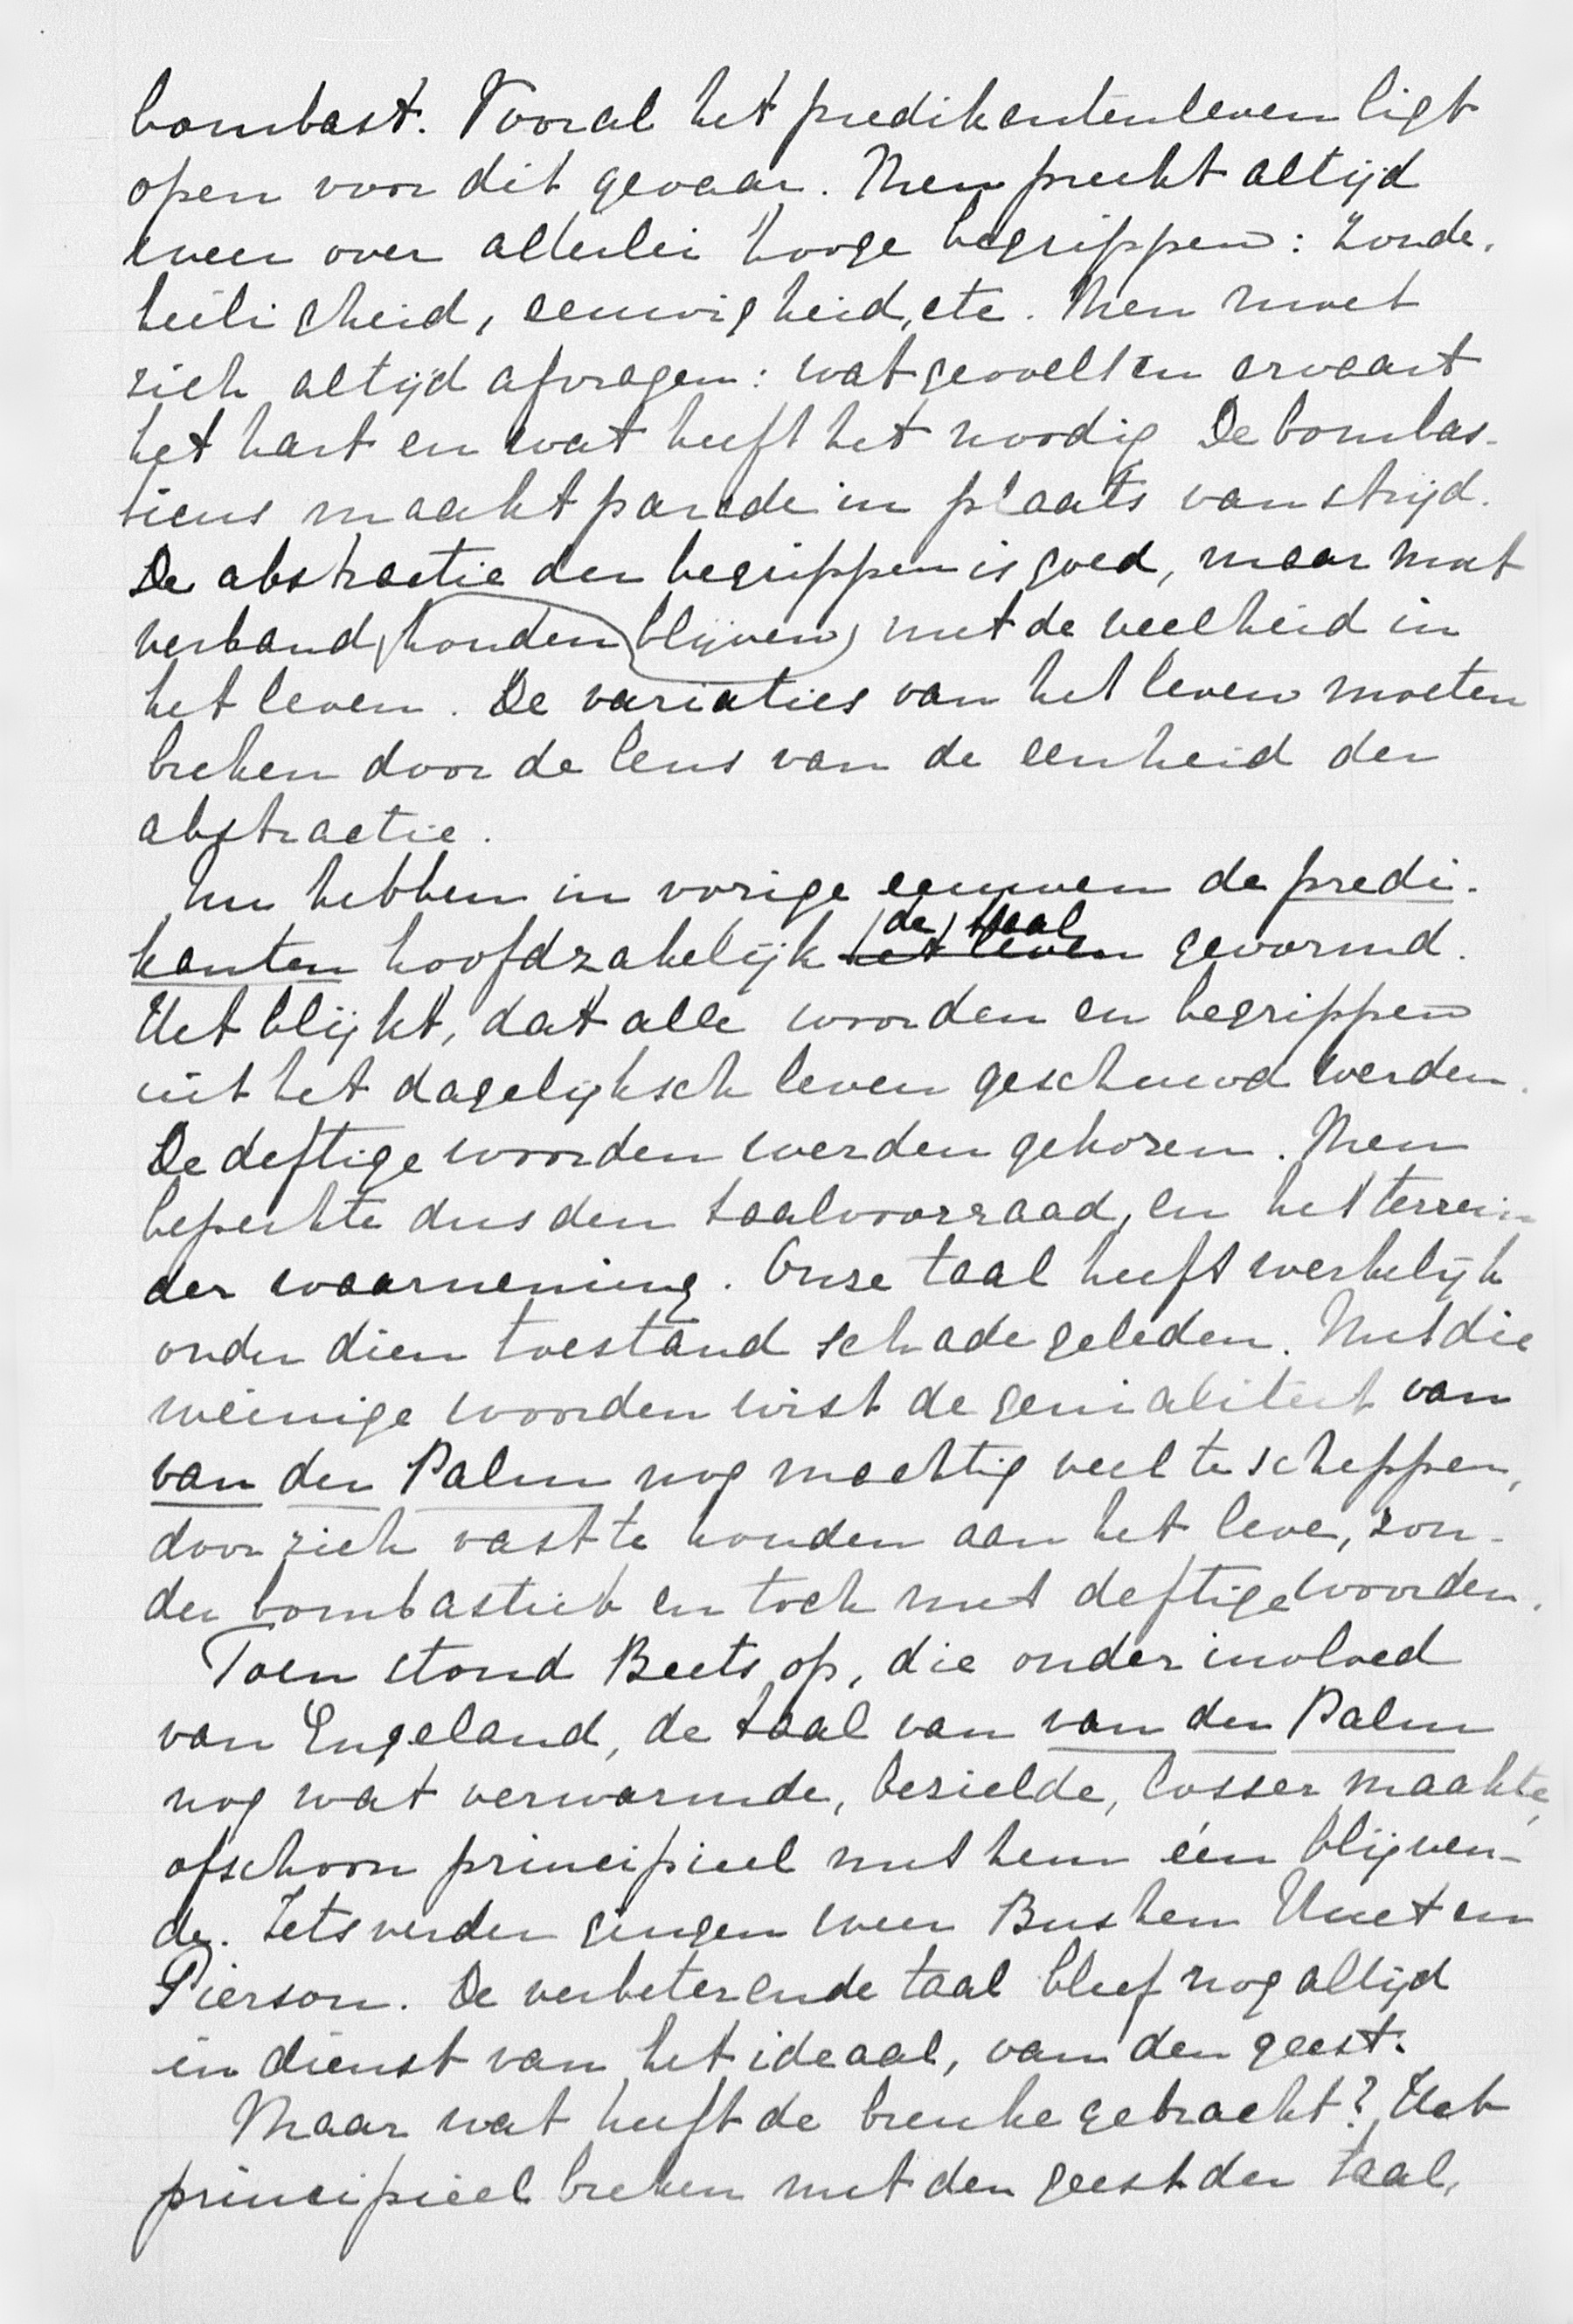 bombast. Vooral het predikantenleven ligt
open voor dit gevaar. Men preekt altijd
weer over allerlei hooge begrippen: zonde,
heiligheid, eeuwigheid, etc. Men moet
zich altijd afvragen: wat gevoelt en ervaart
het hart en wat heeft het noodig. De bombas-
ticus maakt parade in plaats van strijd.
De abstractie der begrippen is goed, maar moet
verband houden blijven met de veelheid in
het leven. De variaties van het leven moeten
breken door de lens van de eenheid der
abstractie.
Nu hebben in vorige eeuwen de predi-
kanten hoofdzakelijk het leven (de) taal gevormd.
Het blijkt, dat alle woorden en begrippen
uit het dagelijksch leven geschuwd werden.
De deftige woorden werden gekozen. Men
beperkte dus den taalvoorraad, en het terrein
der waarneming. Onze taal heeft werkelijk
onder dien toestand schade geleden. Met die
weinige woorden wist de genialiteit van
van der Palm nog machtig veel te scheppen,
door zich vast te houden aan het leve, zon-
der bombastiek en toch met deftige woorden.
Toen stond Beets op, die onder invloed
van Engeland, de taal van van der Palm
nog wat verwarmde, bezielde, losser maakte,
ofschoon principieel met hem één blijven-
de. Iets verder gingen weer Busken Huet en
Pierson. De verbeterende taal bleef nog altijd
in dienst van het ideaal, van den geest.
Maar wat heeft de breuke gebracht? Het
principieel breken met den geest der taal,